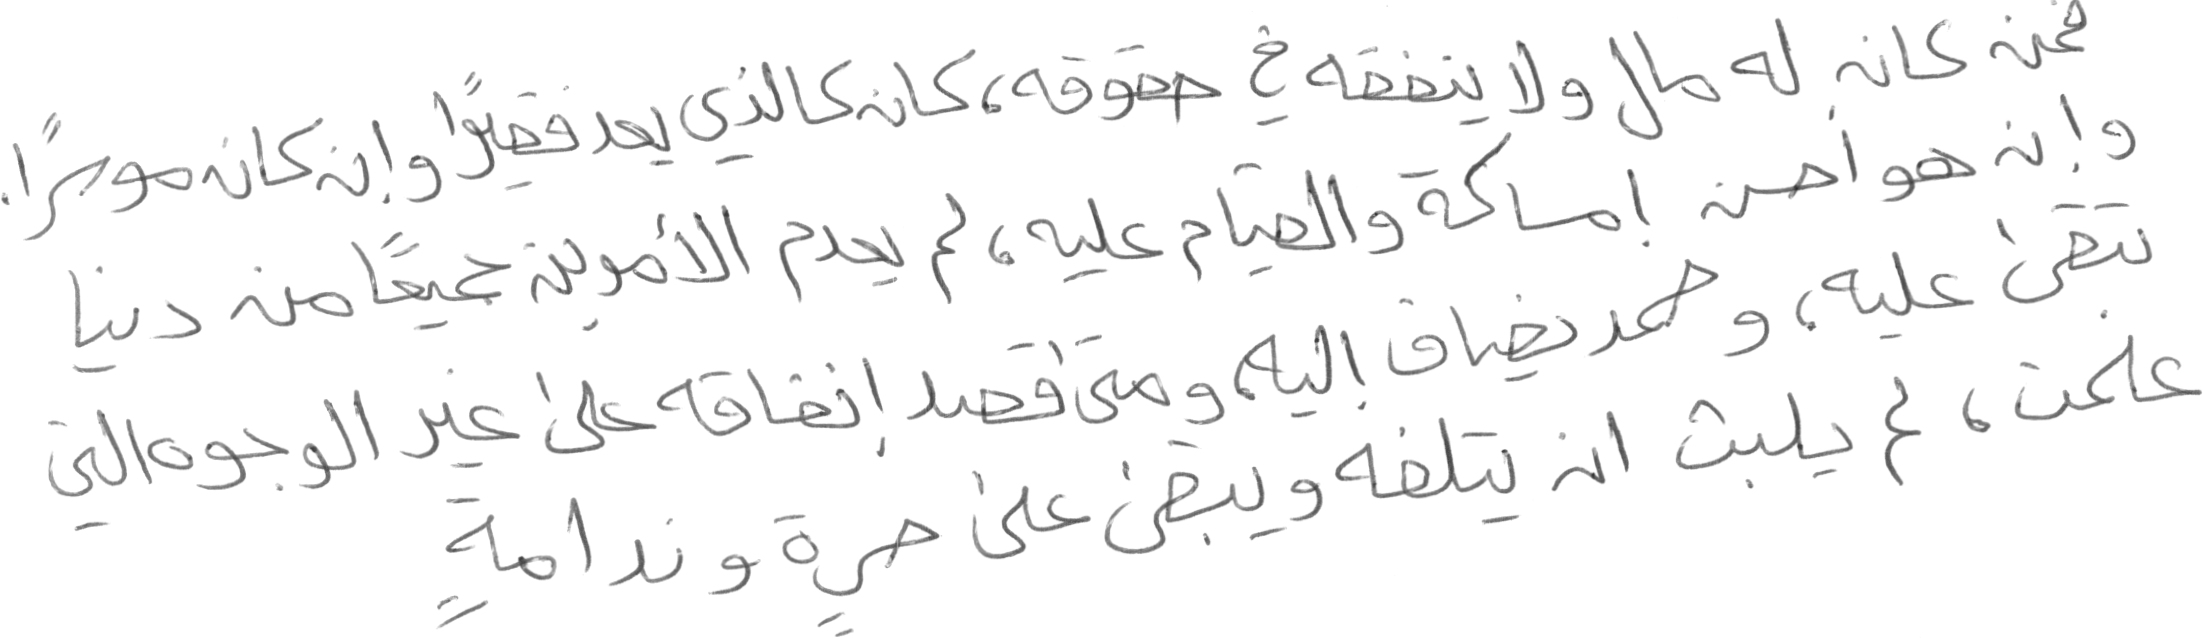 فمن كان له مال ولا ينفقه في حقوقه، كان كالذي يعد فقيرًا وإن كان موسرًا.
وإن هو أحسن إمساكة والقيام عليه، لم يعدم الأمرين جميعًا من دنيا
تبقىٰ عليه، وحمد يضاف إليه، ومتىٰ قصد إنفاقه علىٰ غير الوجوه التي
علمت، لم يلبث ان يتلفه ويبقىٰ علىٰ حسرةٍ وندامةٍ